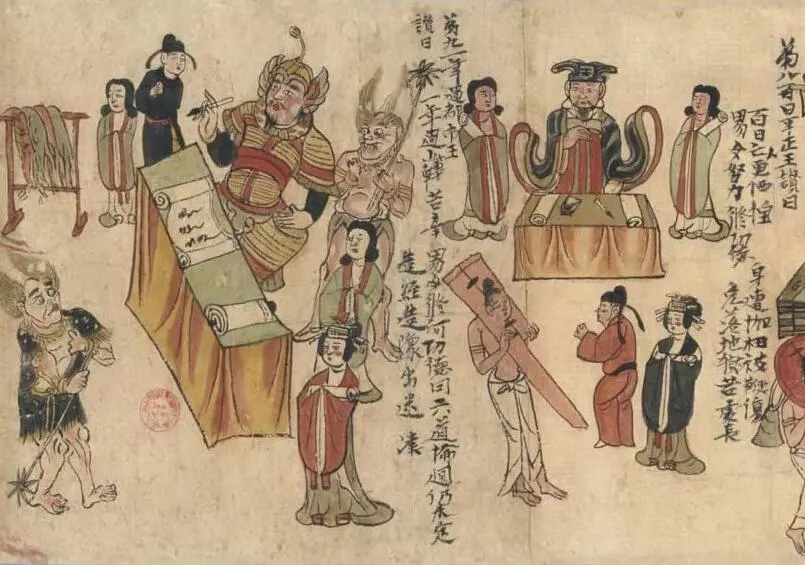 第八百日平正王讚曰
百日亡人更恓惶 身遭枷杻被鞭傷
男女努力修功德 免落地獄苦處長
第九一年過都市王
讚曰
一年過此轉苦辛 男女修何功德因 六道輪迴仍未定
造經造像出迷津